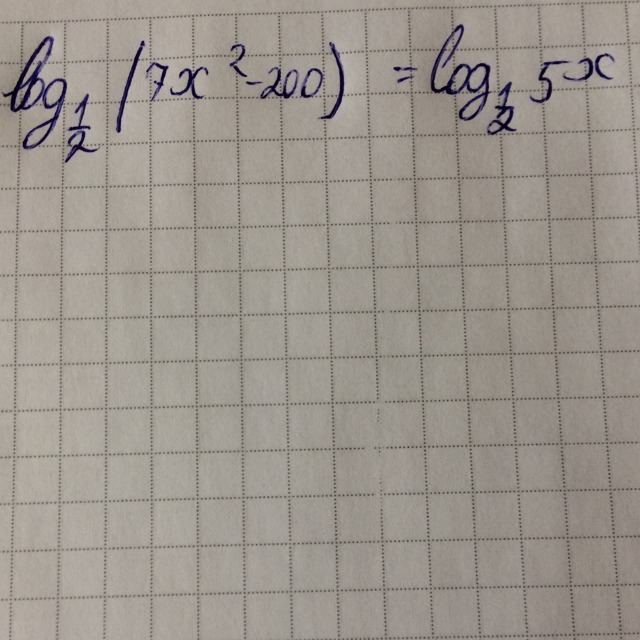 log_{1/2} (7x^2-200) = log_{1/2} 5x